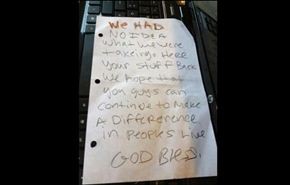 We HAD
NO IDEA
what we were
takeing. Here
Your stuff Back
We hope that
you guys can
continue to Make
A Difference
in peoples Live
GOD Bless.